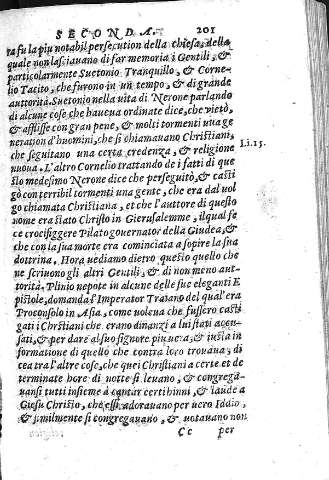 SECONDA. 201
ra fu la piu notabil persecution della chiesa, della
quale non lasciauano di far memoria i Gentili, &
particolarmente Suetonio Tranquillo, & Corne-
lio Tacito, che furono in un tempo, & di grande
auttorità. Suetonio nella uita di Nerone parlando
di alcune cose che haueua ordinate dice, che uietò,
& afflisse con gran pene, & molti tormenti una ge
neration d'huomini, che si chiamauano Christiani,
che seguitano una certa credenza, & religione
nuoua. L'altro Cornelio trattando de i fatti di que
sto medesimo Nerone dice che perseguitò, & casti
gò con terribil tormenti una gente, che era dal uol
go chiamata Christiana, et che l'auttore di questo
nome era stato Christo in Gierusalemme, il qual fe
ce crocifiggere Pilato gouernator della Giudea, &
che con la sua morte era cominciata a sopire la sua
dottrina. Hora uediamo dietro questio quello che
ne scriuono gli altri Gentili, & di non meno aut-
torità. Plinio nepote in alcune delle sue eleganti E
pistole, domanda l'Imperator Traiano del qual'era
Proconsolo in Asia, come uoleua che fussero casti
gati i Christiani che erano dinanzi a lui stati accu-
sati, & per dare al suo signore piu uera, & iusta in
formatione di quello che contra loro trouaua; di
cea tra l'altre cose, che quei Christiani a certe et de
terminate hore di notte si leuano, & congrega-
uansi tutti insieme à cantar certi hinni, & laude a
Giesu Christo, che essi adorauano per uero Iddio,
& similmente si congregauano, & uotauano non
Cc per
Li.15.